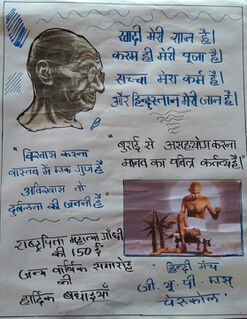 खादी मेरी शान है।
करम ही मेरी पूजा है।
सच्चा मेरा कर्म है।
और हिन्दुस्तान मेरी जान है।
"विश्वास करना
वास्तव में एक गुण है
अविश्वास तो
दुर्बलता की जननी है"
"बुराई से असहयोग करना
मानव का पवित्र कर्तव्य है।"
राष्ट्रपिता महात्मा गाँधी
की 150 ई
जन्म वार्षिक समारोह
की
हार्दिक बधाइयाँ
हिन्दी मंच
जी. यु. पी. एस